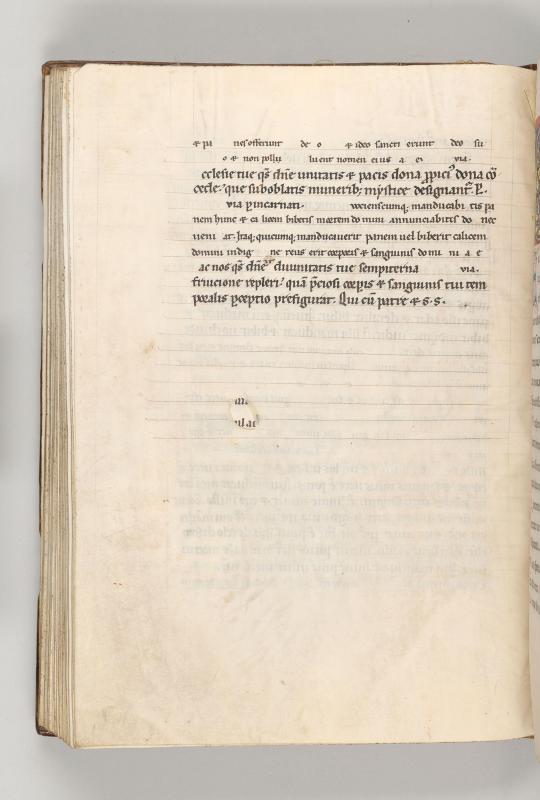 & pa nes offerunt de o & ideo sancti erunt deo su
o & non pollu luent nomen eius a e via.
cclesie tue qs dñe unitatis & pacis dona ꝓpici' dona cō
cede. que sub oblatis munerib; mystice designant'. P.
via ꝑ incarnati. uocienscumq; manducabi tis pa
nem hunc & ca licem bibetis mortem do mini annunciabitis do nec
ueni at. Itaq; quicumq; manducauerit panem uel biberit calicem
domini indig ne reus erit corporis & sanguinis do mi ni a e
ac nos qs dñe diuinitatis tue sempiterna via.
fruicione repleri. quā p̄ciosi corꝑis & sanguinis tui tem
poralis ꝑceptio prefigurat. Qui cū patre & s. s.